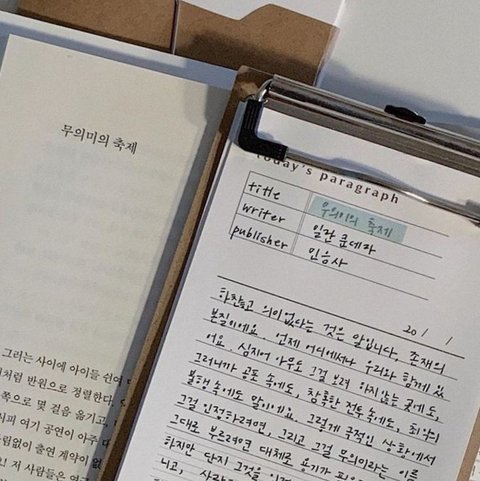 무의미의 축제
그러는 사이에 아이들 쉰여
처럼 반원으로 정렬한다.
쪽으로 몇 걸음 옮기고,
피 여기 공연이 아주
림없이 출연 계약이 없
! 저 사람들은
today's paragraph
title 무의미의 축제
writer 밀란 쿤데라
publisher 민음사
20 / /
하찮고 의미 없다는 것은 말입니다, 존재의
본질이에요. 언제 어디에서나 우리와 함께 있
어요. 심지어 아무도 그걸 보려 하지 않는 곳에도,
그러니까 공포 속에도, 참혹한 전투 속에도, 최악의
불행 속에도 말이에요. 그렇게 극적인 상황에서
그걸 인정하려면, 그리고 그걸 무의미라는 이름
그대로 부르려면 대체로 용기가 필요
하지만 단지 그것을
니고,